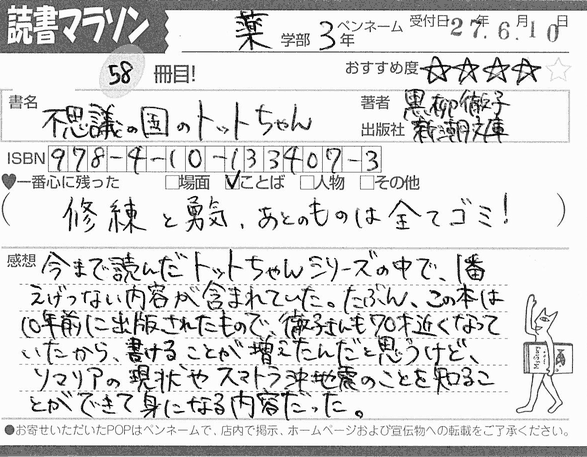 読書マラソン
薬 学部 3年 ペンネーム 受付日 27年 6月 10日
58 冊目! おすすめ度 ★★★★☆
書名 不思議の国のトットちゃん
著者 黒柳徹子
出版社 新潮文庫
ISBN 978-4-10-133407-3
♥一番心に残った □場面 ☑ことば □人物 □その他
( 修練と勇気、あとのものは全てゴミ! )
感想 今まで読んだトットちゃんシリーズの中で、1番
えげつない内容が含まれていた。たぶん、この本は
10年前に出版されたもので、徹子さんも70才近くなって
いたから、書けることが増えたんだと思うけど、
ソマリアの現状やスマトラ沖地震のことを知るこ
とができて身になる内容だった。
●お寄せいただいたPOPはペンネームで、店内で掲示、ホームページおよび宣伝物への転載をご了承ください。